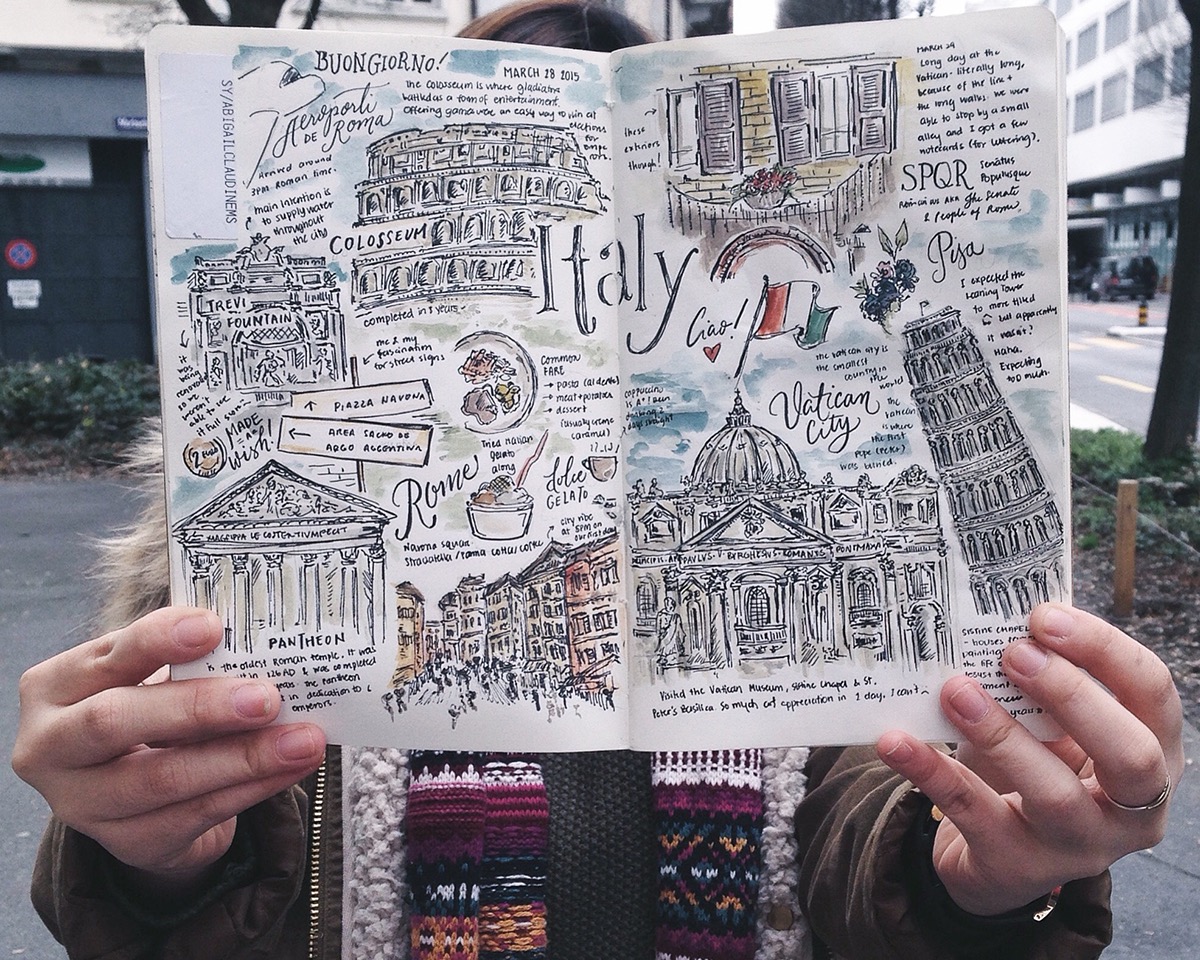 BUONGIORNO!
MARCH 28 2015
SY/ABIGAILCLAUDINEMS
Aeroporti
DE Roma
arrived around
3PM Roman time.
the Colosseum is where gladiators
battled as a form of entertainment.
Offering games was an easy way to win at
main intention is
to supply water
throughout
the city
COLOSSEUM
completed in 8 years
TREVI
FOUNTAIN
MADE
a
wish!
me & my
fascination
for street signs
PIAZZA NAVONA
AREA SACRO DE
ARGO ARGENTINA
COMMON
FARE
→ pasta (al dente)
→ meat + potatoes
→ dessert
(usually creme
caramel)
Tried Italian
gelato
along
dolce
GELATO
Rome
Navona square
city vibe
at 5PM on
our first day
M AGRIPPA
PANTHEON
is the oldest Roman temple. It was
126 AD & was completed
the pantheon
in dedication to
emperors.
Italy
these
exteriors
though!
MARCH 29
Long day at the
Vatican - literally long,
because of the line +
the long walks. we were
able to stop by a small
alley and I got a few
notecards (for lettering).
SPQR
Senatus
Populusque
Romanus AKA The Senate
& People of Rome.
Pisa
I expected the
Leaning Tower
to more tilted
but apparently
it wasn't?
Haha.
Expecting
too much.
Ciao!
cappuccino
the Vatican city is
the smallest
country in
the world
Vatican
City
the
vatican
is where
the first
pope (Peter)
was buried.
PAVLVS V BVRGHESIVS ROMANVS PONT MAX
Visited the Vatican Museum, Sistine Chapel & St.
Peter's Basilica. So much art appreciation in 1 day, I can't
SISTINE CHAPEL
- houses
paintings
the life